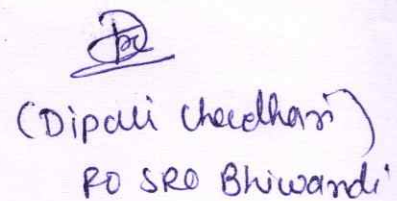 (Dipali Chaudhari)
FO SRO Bhiwandi